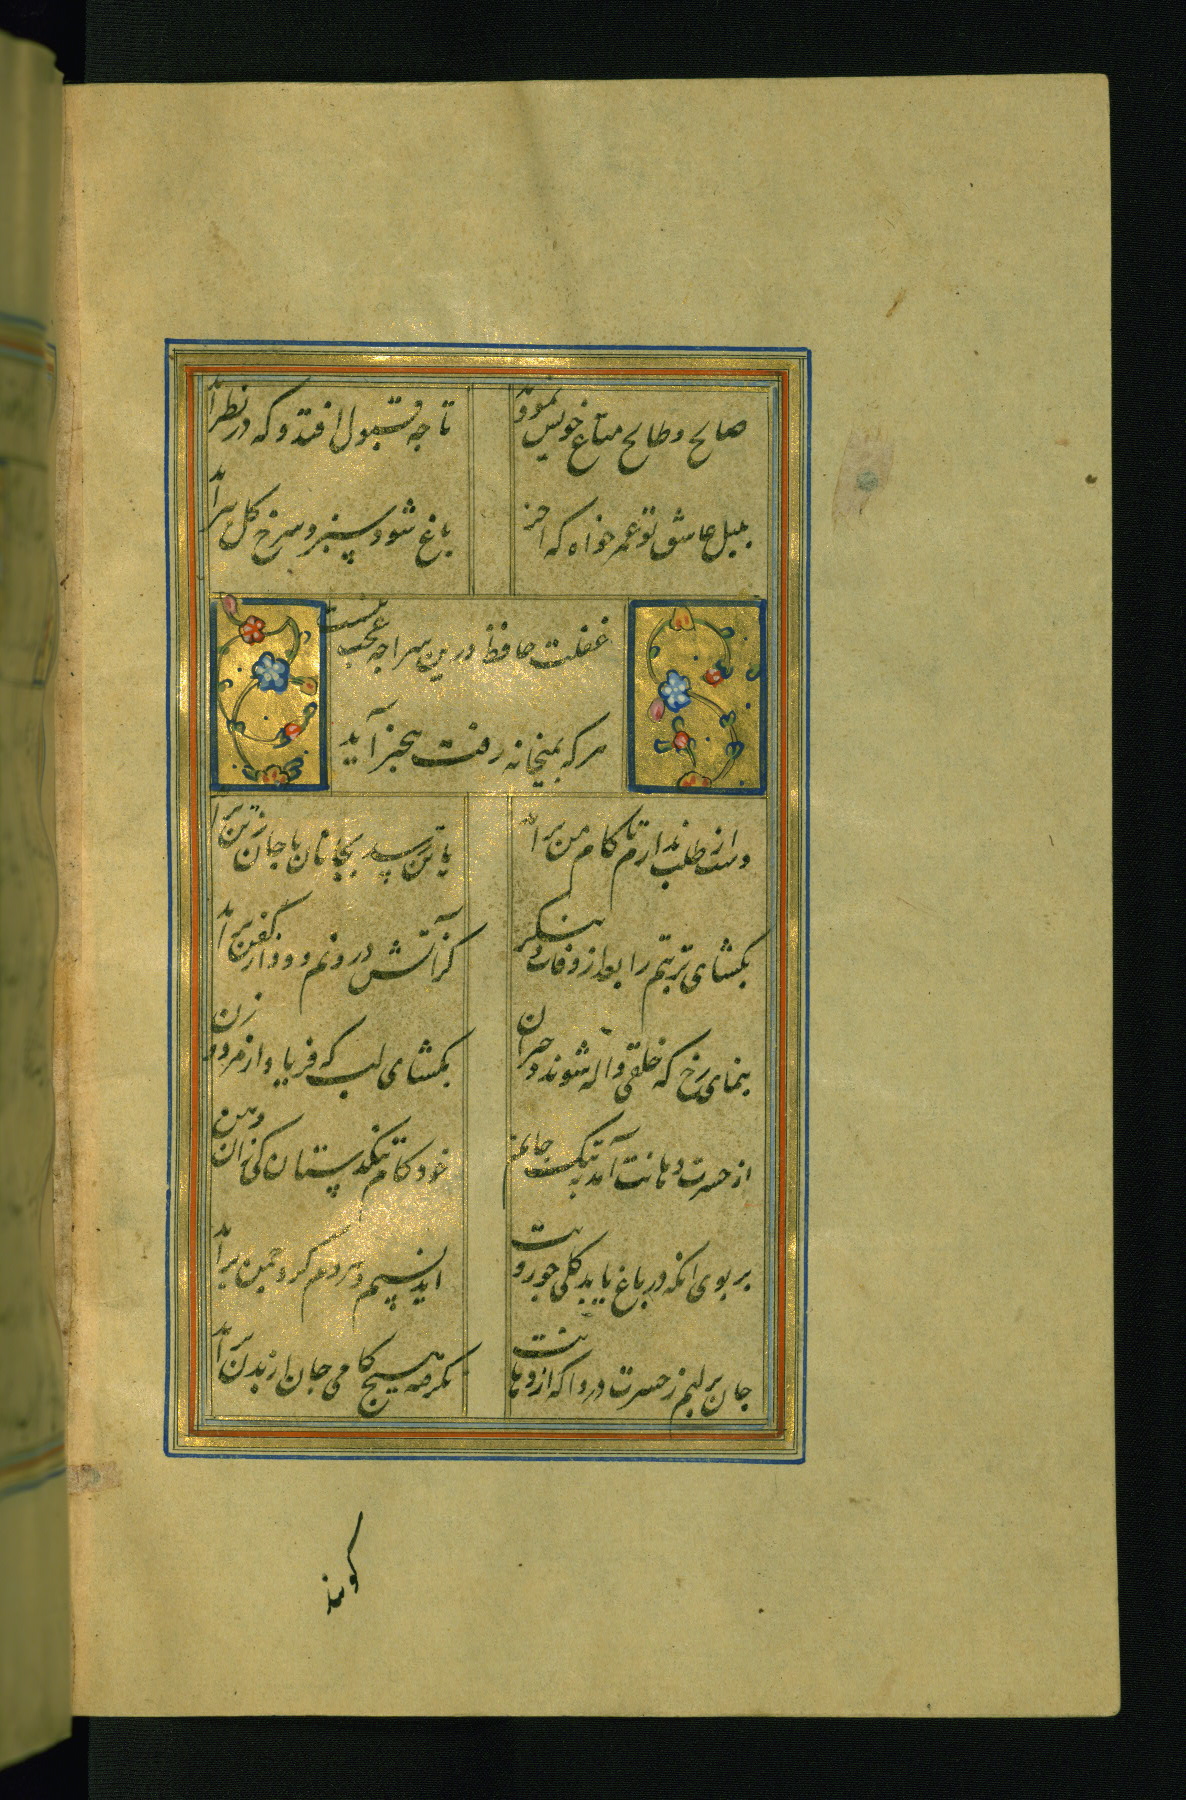 صالح و طالح متاع خویش نمودند
تا چه قبول افتد و که در نظر آید
بلبل عاشق تو عمر خواه که آخر
باغ شود سبز و سرخ گل ببر آید
غفلت حافظ درین سراچه عجب نیست
هر که بمیخانه رفت بیخبر آید
دست از طلب ندارم تا کام من برآید
یا تن رسد بجانان یا جان ز تن برآید
بکشای تربتم را بعد از وفات و بنکر
کز آتش درونم دود از کفن برآید
بنمای رخ که خلقی واله شوند و حیران
بکشای لب که فریاد از مرد و زن
از حسرت دهانت آمد به تنک جانم
خود کام تنکدستان کی زان دهن
بر بوی انکه در باغ یابد کلی چو رویت
اید نسیم و هر دم کرد چمن برآید
جان بر لبم ز حسرت در دل که از دهانت
نکرفته هیچ کامی جان از بدن برآید
کویند